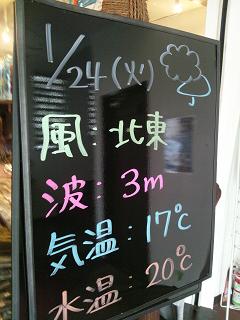 1/24(火)
風:北東
波:3m
気温:17℃
水温:20℃